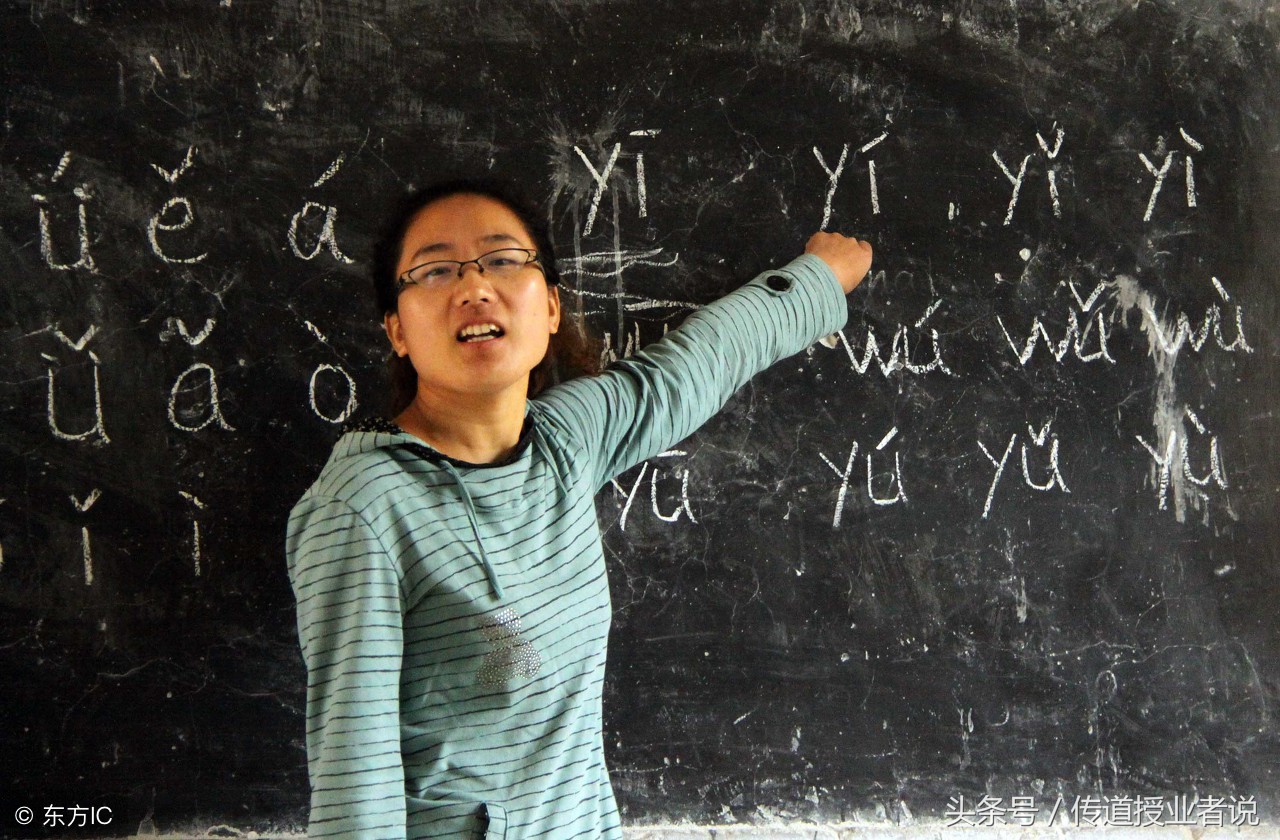 ǘ ě á yī yí yǐ yì
ǚ ǎ ò wú wǔ wù
ǐ ì yū yú yǔ yù
© 东方IC
头条号 / 传道授业者说